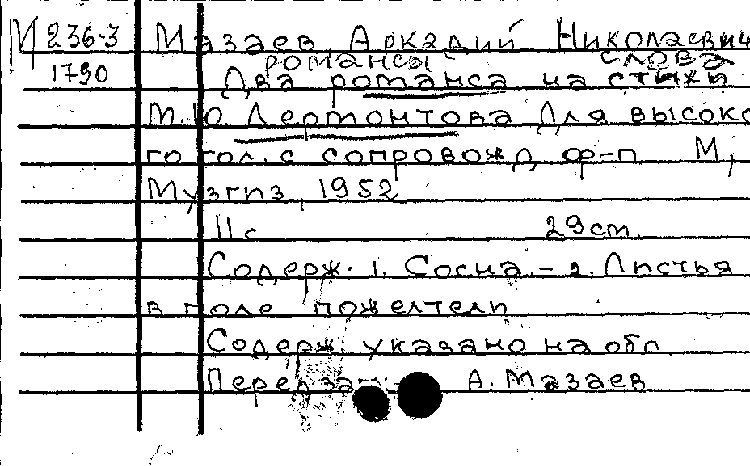 М 236-3 Мазаев, Аркадий Николаевич
1790
романсы слова
Два романса на стихи
М.Ю. Лермонтова Для высоко
го гол. с сопровожд. ф-п М,
Музгиз, 1952
11 с 29 cm.
Содерж. 1. Сосна. – 2. Листья
в поле пожелтели
Содерж. указано на обл
Перед А. Мазаев